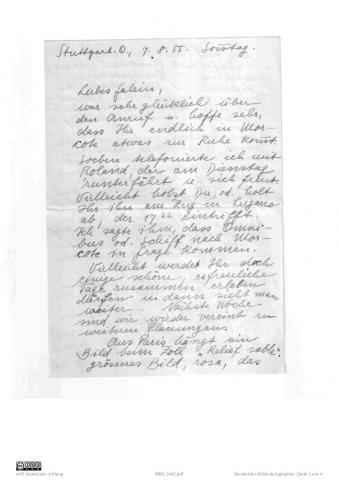 Stuttgart-O, 7.8.55. Sonntag.
Liebes felein,
war sehr glücklich über
den Anruf u. hoffe sehr,
dass Ihr endlich in Mor-
cote etwas zur Ruhe kommt
Soeben telefonierte ich mit
Roland, der am Dienstag
runterfährt u. sich freut
Vielleicht holst Du, od. holt
Ihr ihn am Zug in Lugano
ab der 17 22 eintrifft.
Ich sagte ihm, dass Omni-
bus od. Schiff nach Mor-
cote in frage kommen.
Vielleicht werdet Ihr doch
einige schöne, erfreuliche
Tage zusammen erleben
dürfen u. dann sieht man
weiter. Nächste Woche
sind wir wieder vereint zu
weiteren Planungen.
Aus Paris hängt ein
Bild beim Zoll "Relief sable".
grösseres Bild, rosa, das
willi baumeister stiftung
Baumeister-Dehm Autographen | Seite 1 von 4